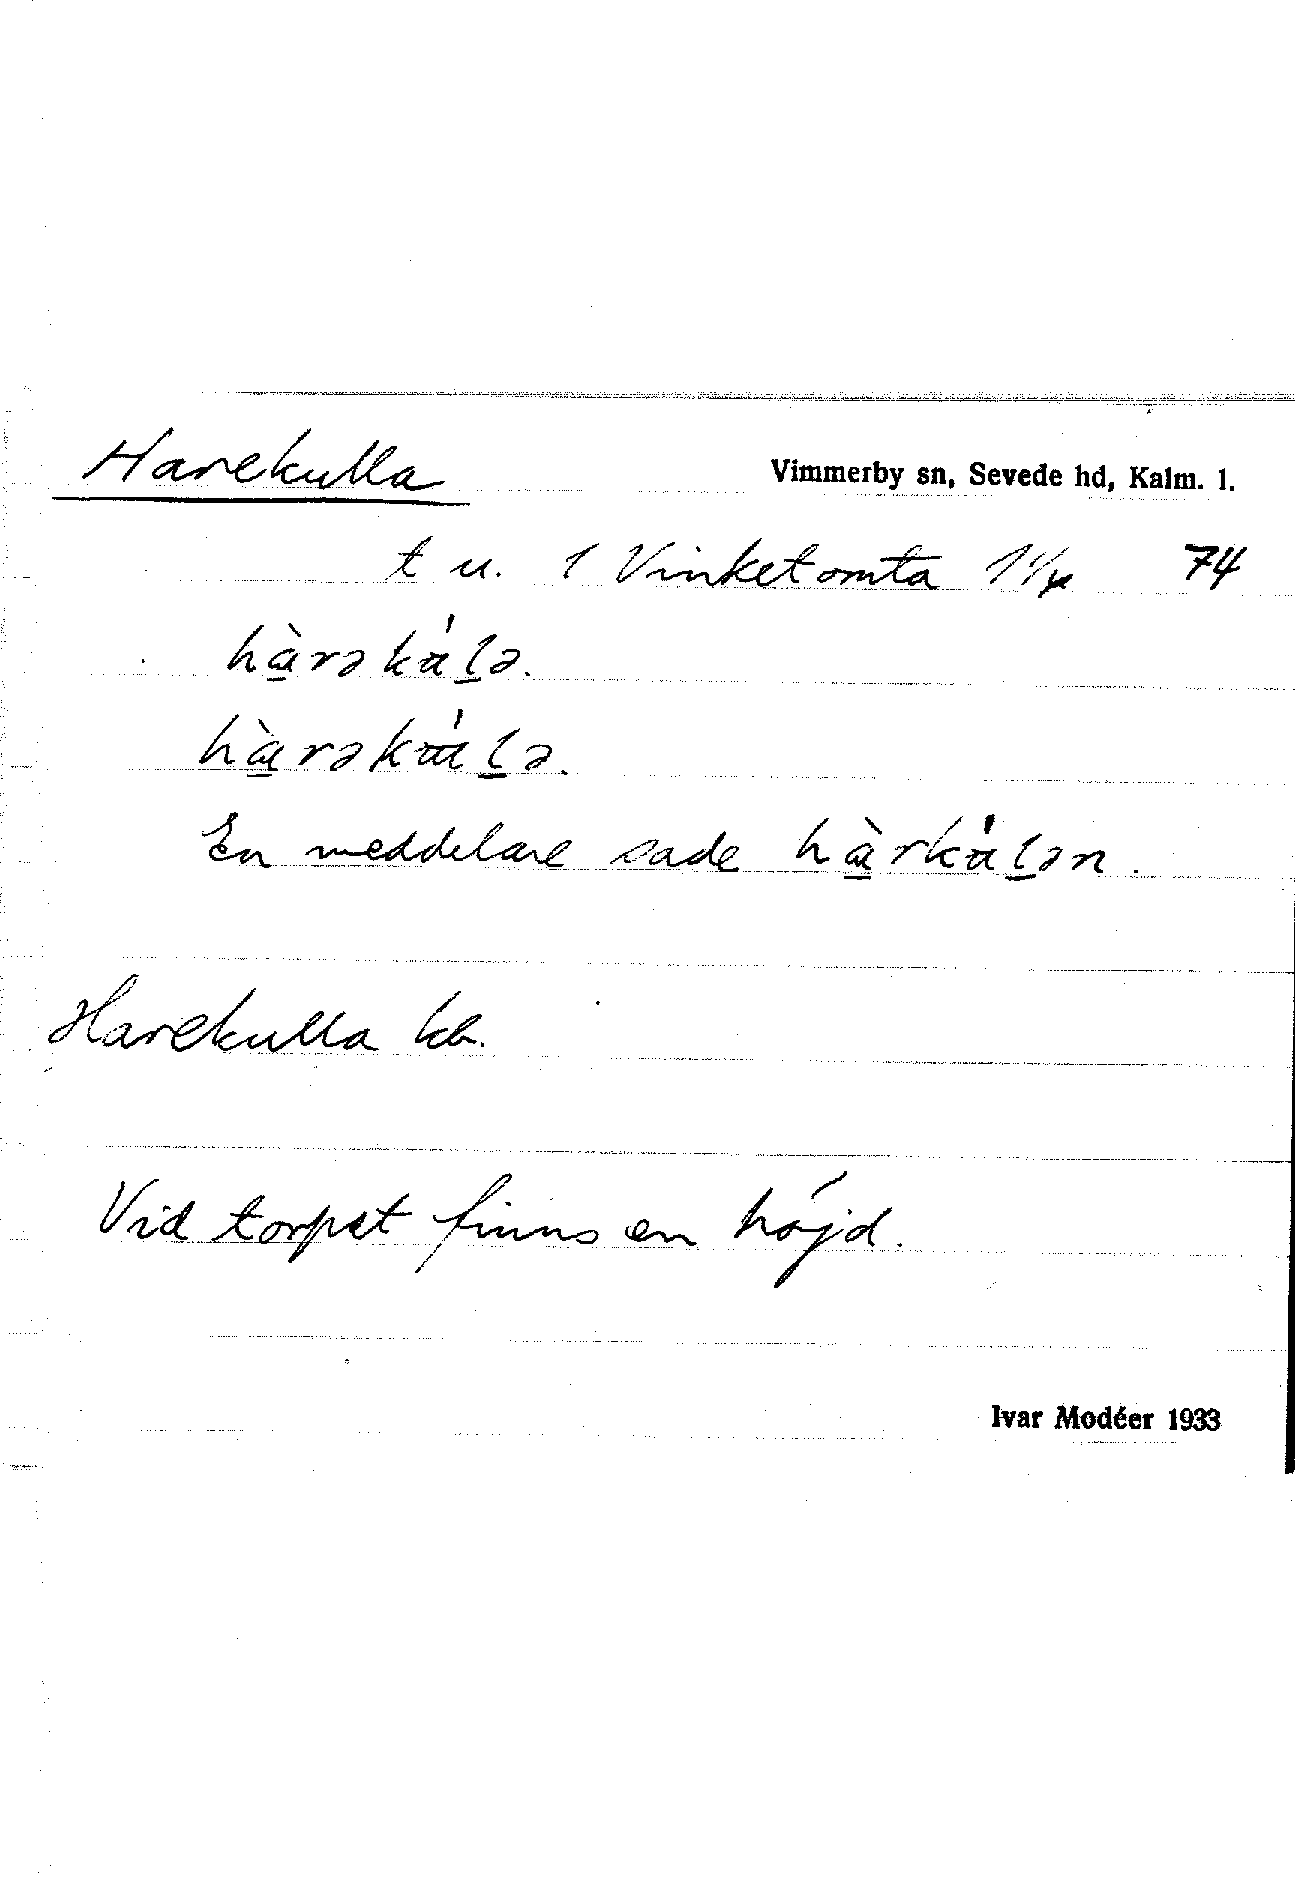 Harekulla Vimmerby sn, Sevede hd, Kalm. l.
t u. 1 Vinketomta 74
hàrəkálə.
hàrəkálə.
En meddelare sade hàrkálən.
Harekulla kb.
Vid torpet finns en höjd.
Ivar Modéer 1933